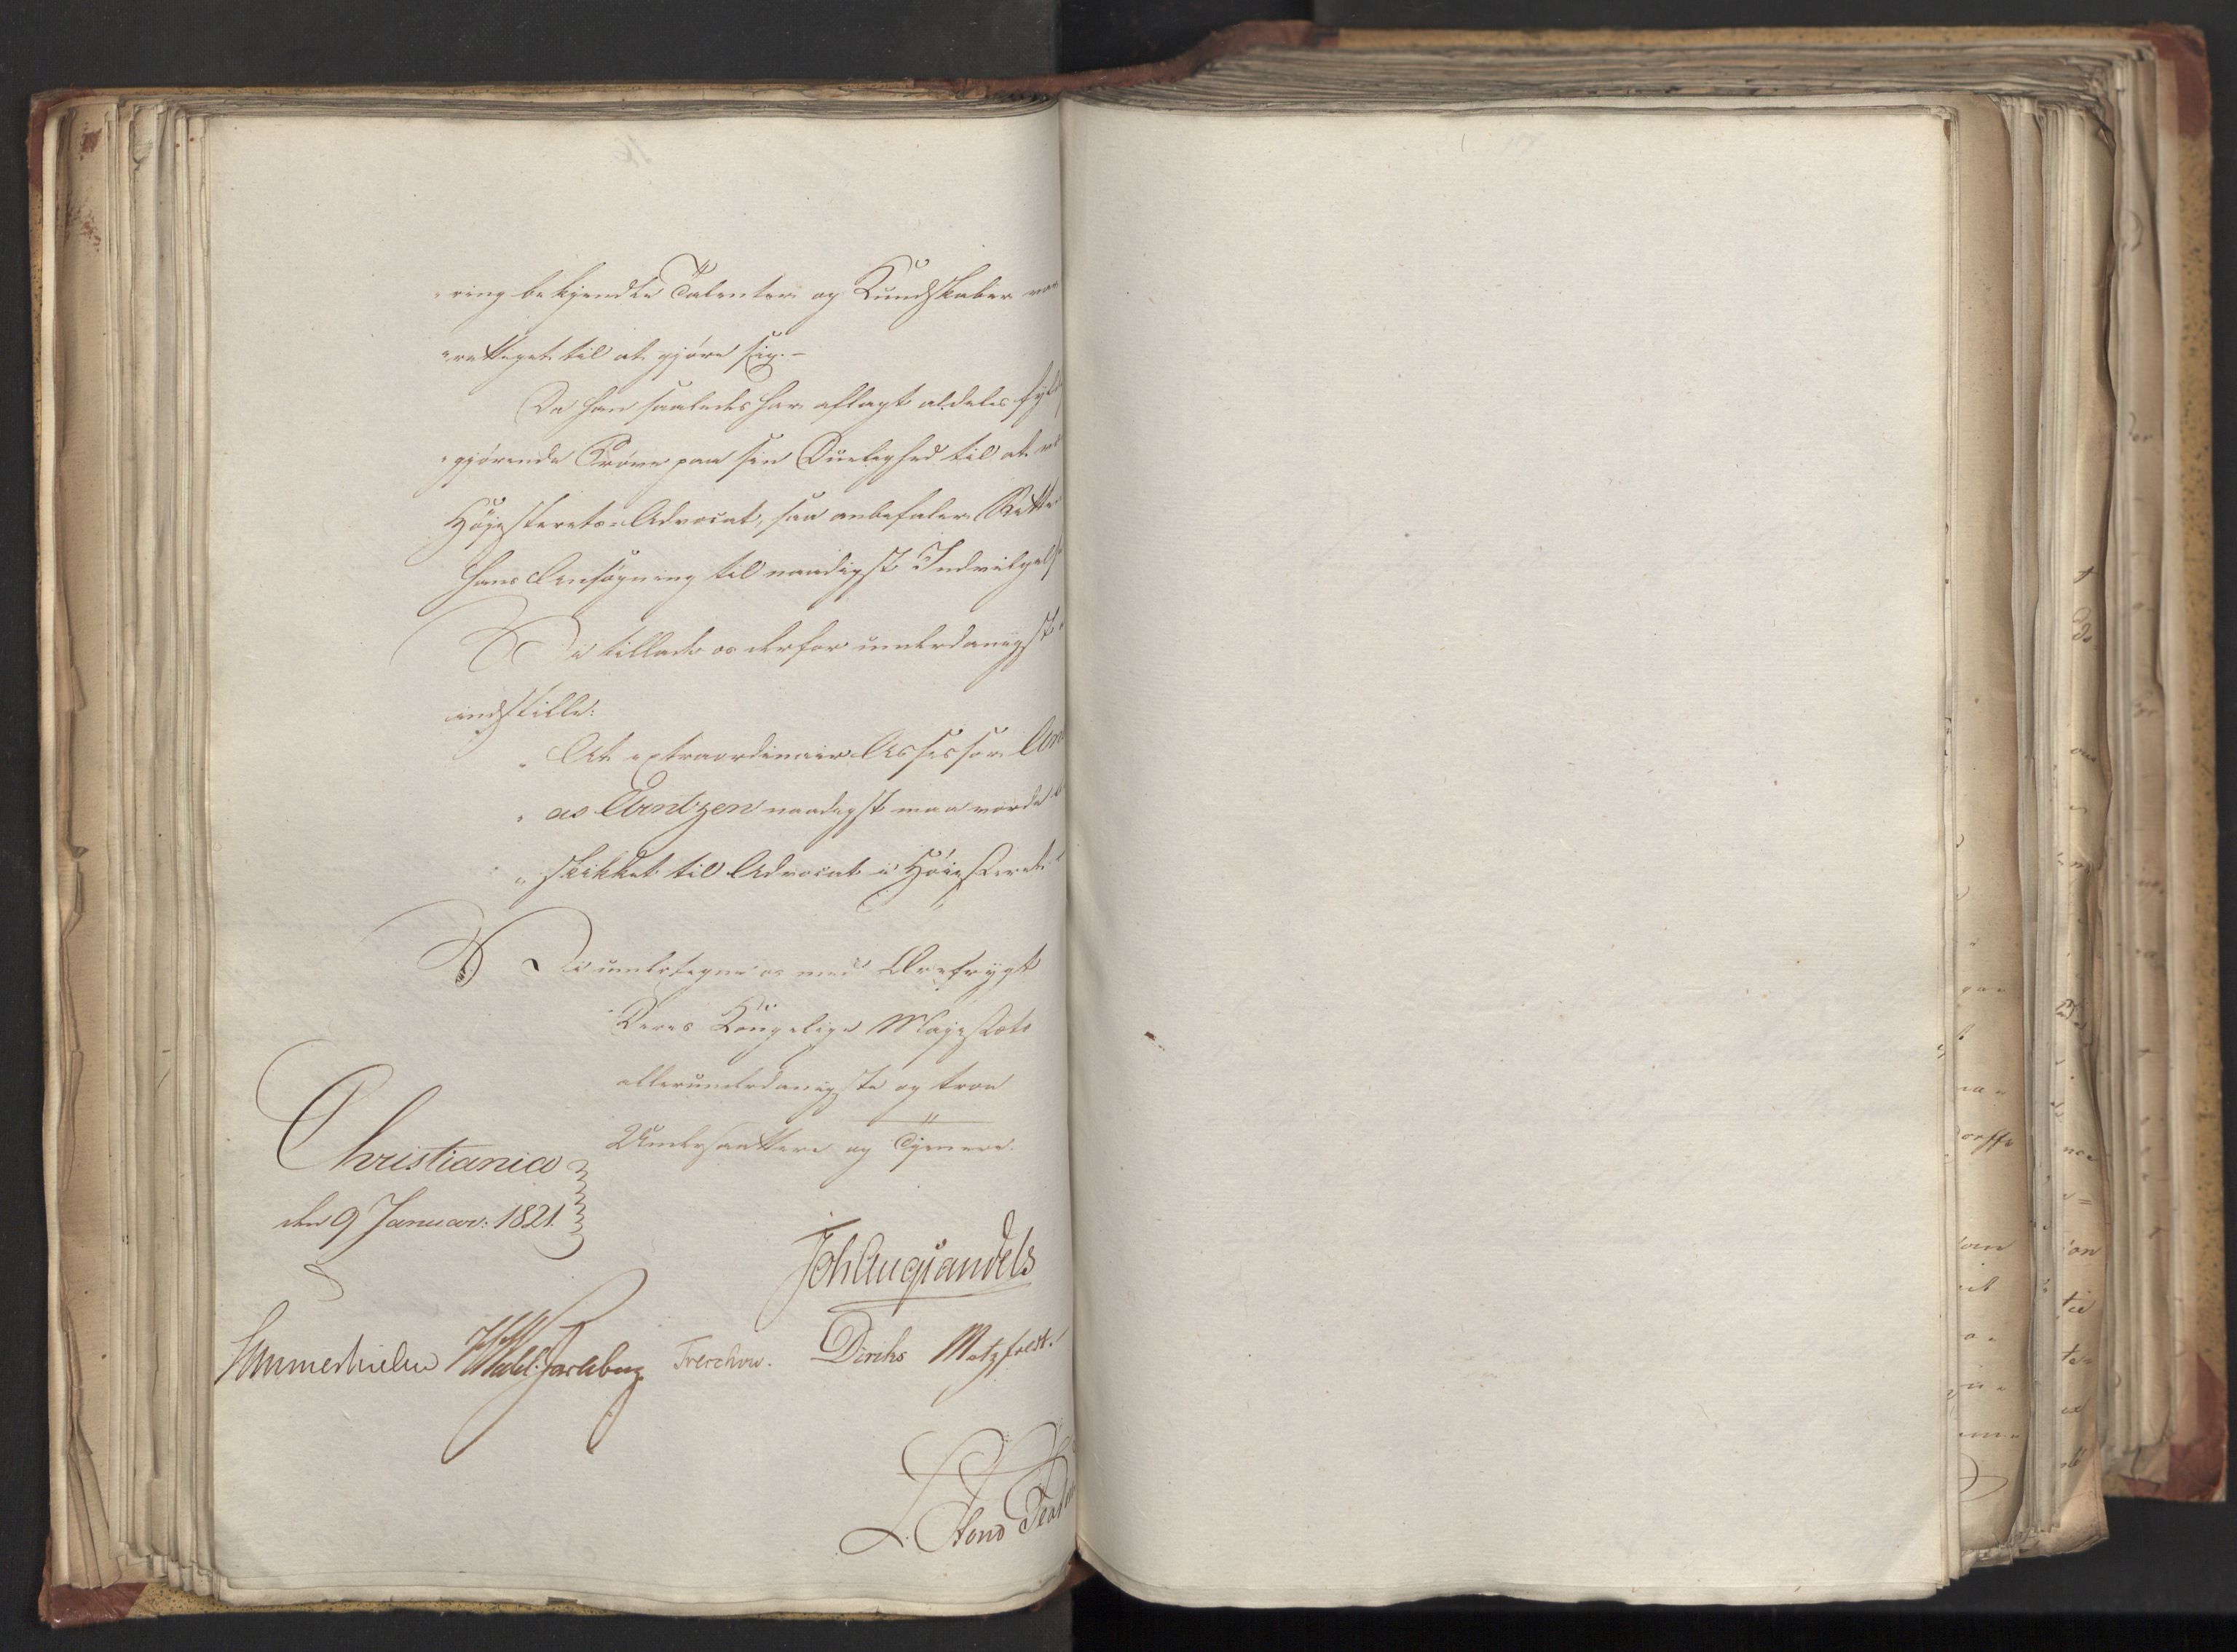 "ring bekjendte Talenter og Kundskaber var
"rettiget til at gjøre sig.-
Da han saaledes har aflagt aldeles fyld
"gjørende Prøve paa sin Duelighed til at
Høiesterets-Advocat, saa anbefaler Retten
hans Ansøgning til naadigst Indvilgelse
Vi tillade os derfor underdanigst
indstille:
" At extraordinair Assessor And
" as Arntzen naadigst maa vorde
" skikket til Advocat i Høiesteret.
Vi undertegne os med Ærefrygt
Deres Kongelige Majestæts
allerunderdanigste og troe
Undersaattere og Tjenere.
Christiania
den 9 Januar: 1821.
Joh Aug Sandels
Sommerhielm Wedel Jarlsberg Treschow. Diriks Motzfeldt.
L. Stoud